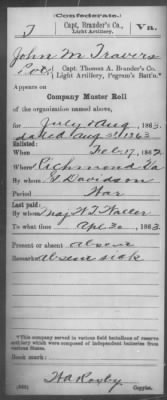 (Confederate.)
T Capt. Brander's Co., Va.
Light Artillery.
John M Travers
Pvt., Capt. Thomas A. Brander's Co.
Light Artillery, Pegram's Batt'n.*
Appears on
Company Muster Roll
of the organization named above,
for July & Aug, 1863.
dated Aug 31 1863
Enlisted:
When Feb. 17, 1862
Where Richmond Va
By whom Davidson
Period War
Last paid:
By whom Maj. Waller
To what time Apl 30, 1863.
Present or absent absent
Remarks: Absent sick
* This company served in various field battalions of reserve
artillery which were composed of independent batteries from
various States.
Book mark:
Copyist.